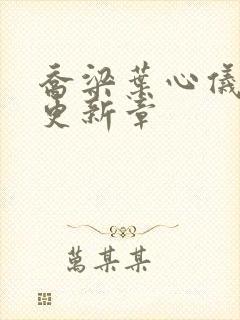 乔梁叶心仪
更新章
万某某